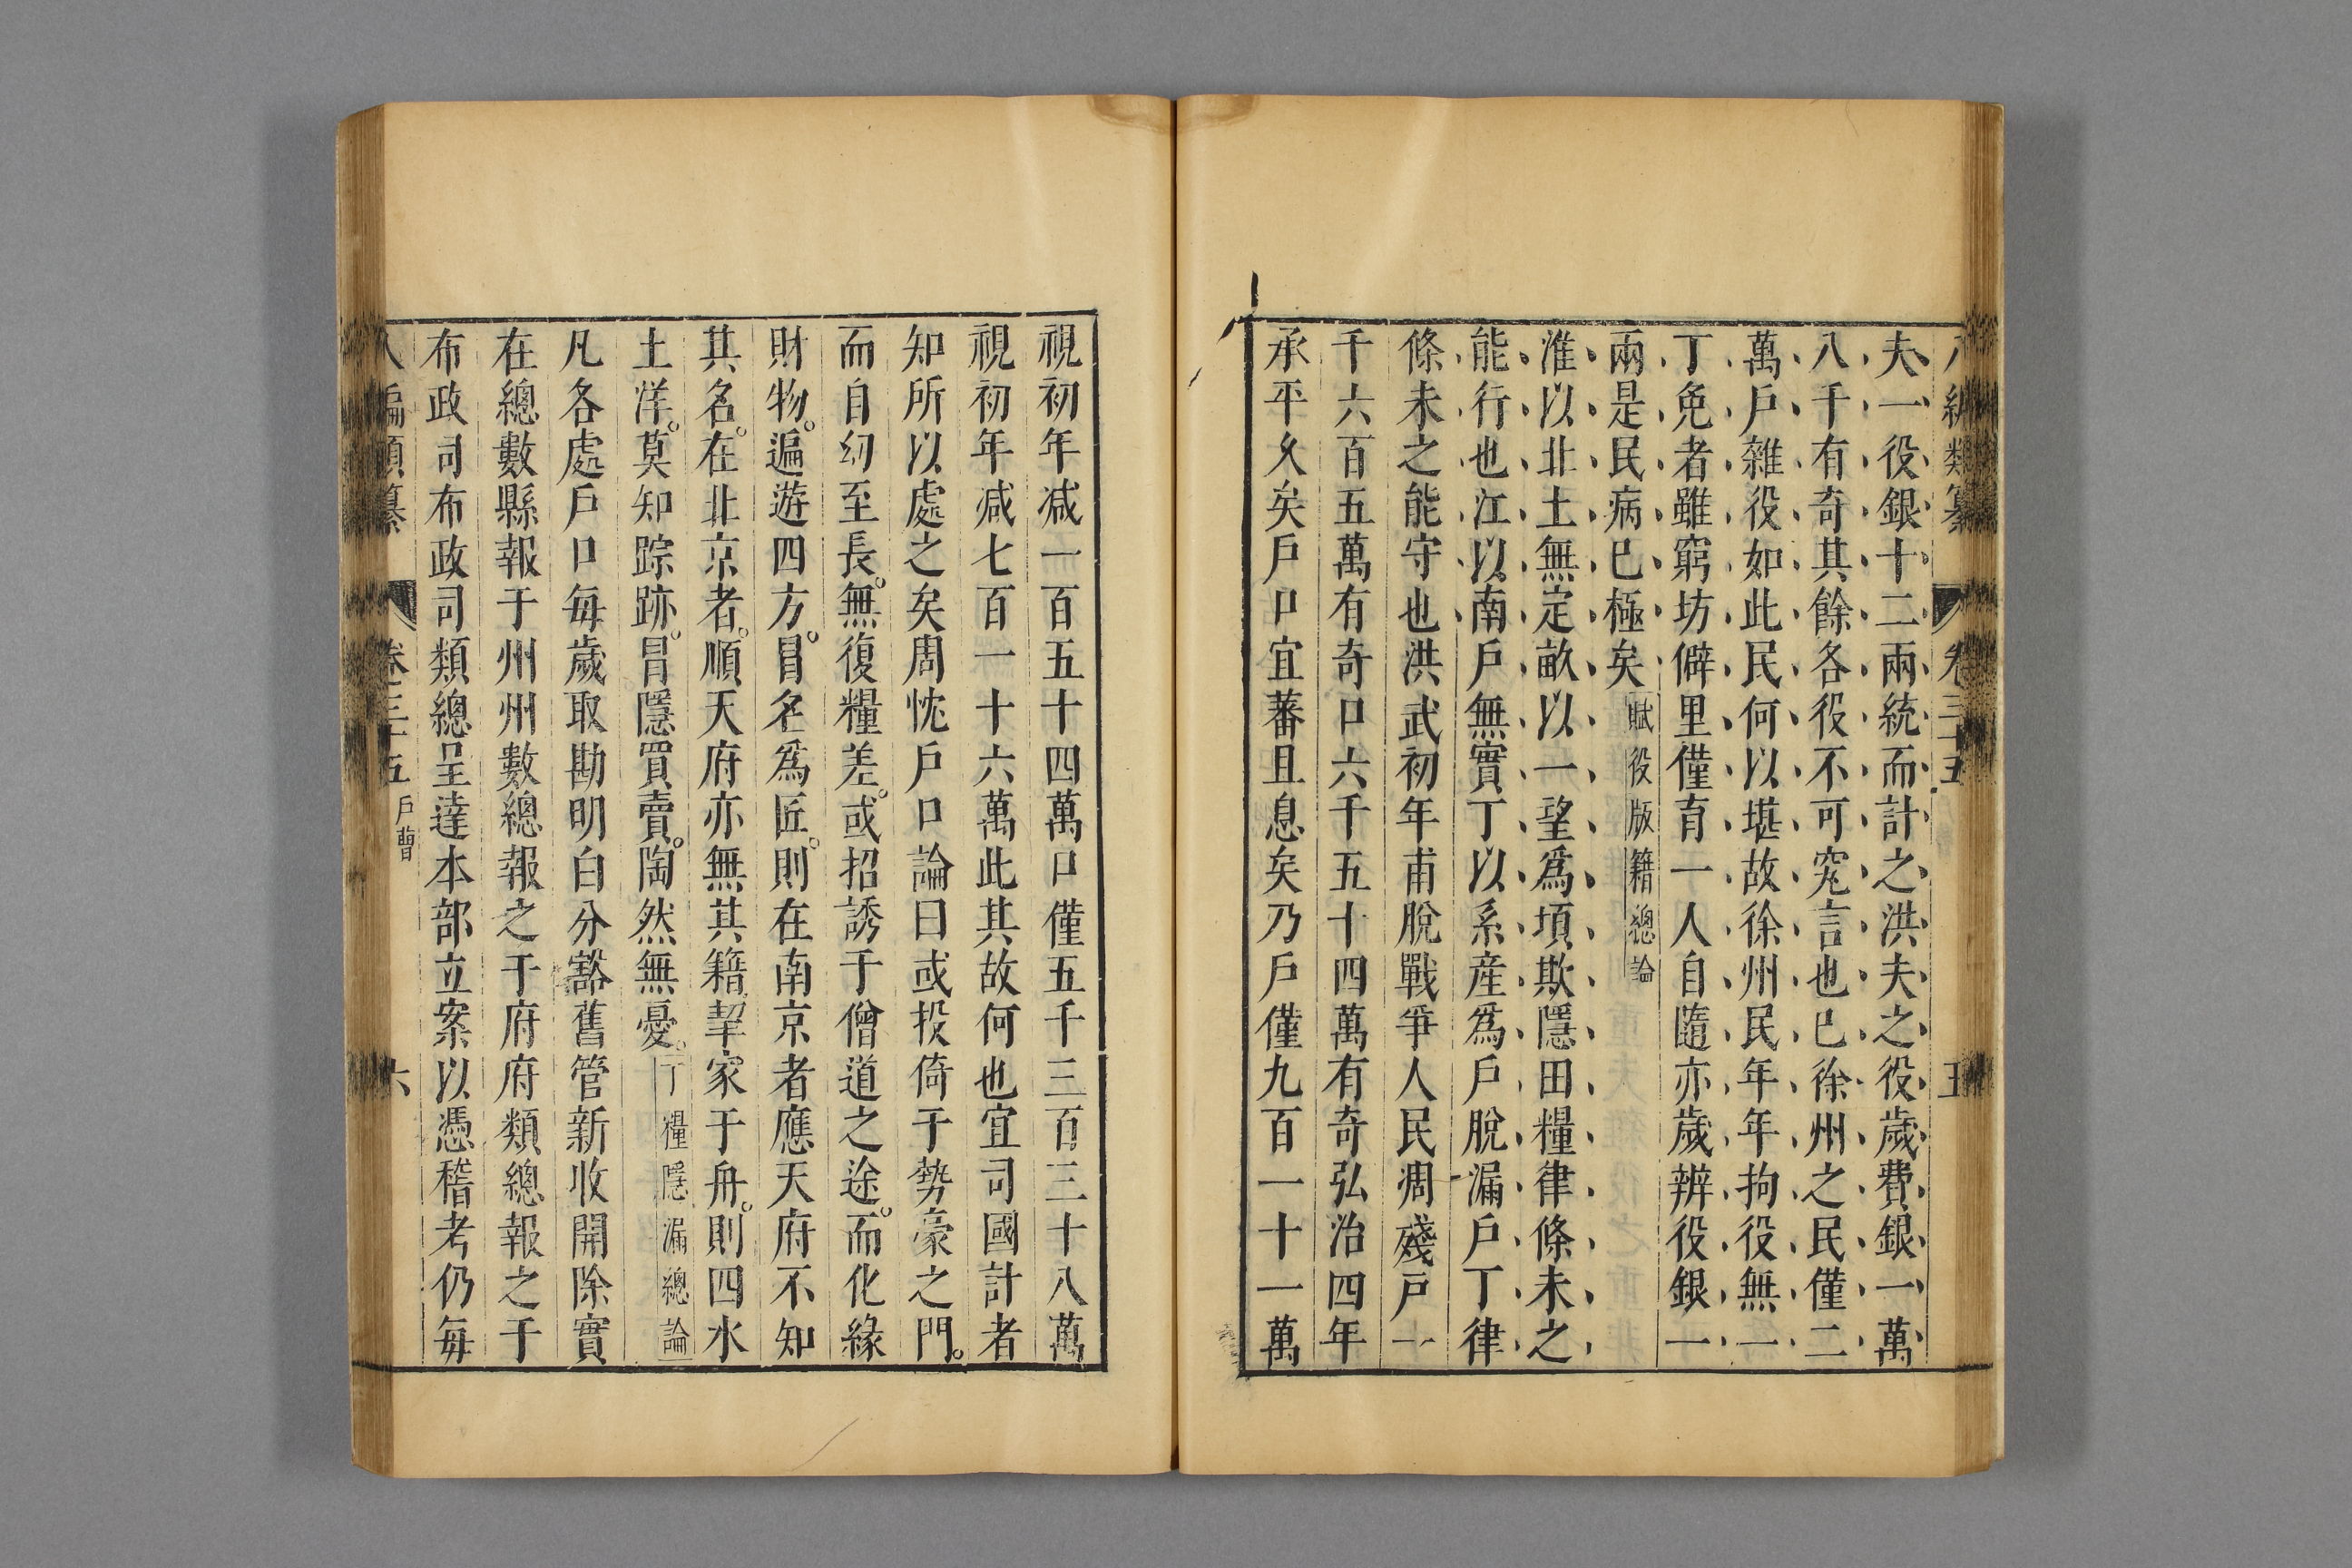 八編類纂 卷三十五 五
夫一役銀十二兩統而計之洪夫之役歲費銀一萬
八千有奇其餘各役不可寃言也已徐州之民僅二
萬戶雜役如此民何以堪故徐州民年年拘役無一
丁免者雖窮坊僻里僅育一人自隨亦歲辨役銀一
兩是民病已極矣賦役版籍總論
淮以北土無定畝以一望爲項欺隱田糧律條未之
能行也江以南戶無實丁以系産爲戶脫漏戶丁律
條未之能守也洪武初年甫脫戰爭人民凋殘戸一
千六百五萬有奇口六千五十四萬有奇弘治四年
承平久矣戶口宜蕃且息矣乃戶僅九百一十一萬
視初年減一百五十四萬口僅五千三百三十八萬
視初年減七百一十六萬此其故何也宜司國計者
知所以處之矣周忱戶口論曰或投倚于勢豪之門。
而自幼至長。無復糧差。或招誘于僧道之途。而化緣
財物。遍遊四方。冒名爲匠。則在南京者應天府不知
其名。在北京者。順天府亦無其籍挈家于舟。則四水
土洋。莫知踪跡。冒隱買賣。陶然無憂。丁糧隱漏總論
凡各處戶口每歲取勘明白分豁舊管新收開除實
在總數縣報于州州數總報之于府府類總報之于
布政司布政司類總呈達本部立案以憑稽考仍每
八編類纂 卷三十五 戶曹 六